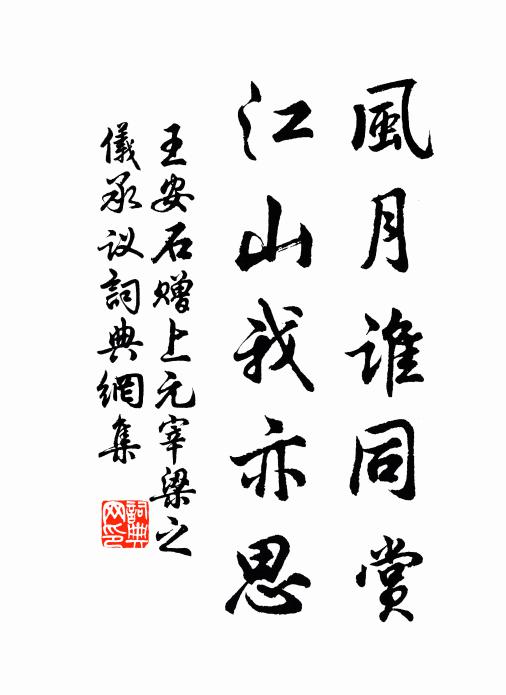 風月誰同賞
江山我亦思
王安石赠上元宰梁之
儀承议詞典網集
詞典网印